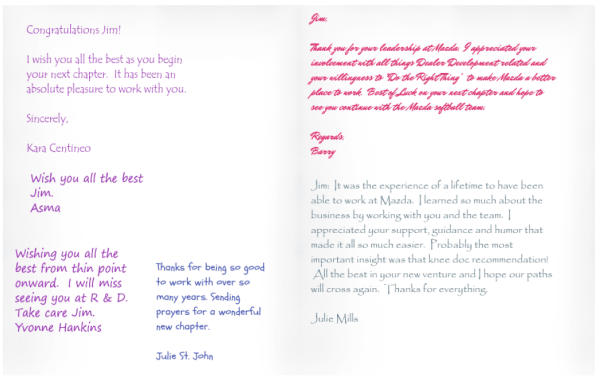 Congratulations Jim!
I wish you all the best as you begin
your next chapter. It has been an
absolute pleasure to work with you.
Sincerely,
Kara Centineo
Wish you all the best
Jim.
Asma
Wishing you all the
best from thin point
onward. I will miss
seeing you at R & D.
Take care Jim.
Yvonne Hankins
Thanks for being so good
to work with over so
many years. Sending
prayers for a wonderful
new chapter.
Julie St. John
Jim,
Thank you for your leadership at Mazda. I appreciated your
involvement with all things Dealer Development related and
your willingness to "Do the Right Thing" to make Mazda a better
place to work. Best of Luck on your next chapter and hope to
see you continue with the Mazda softball team.
Regards,
Barry
Jim: It was the experience of a lifetime to have been
able to work at Mazda. I learned so much about the
business by working with you and the team. I
appreciated your support, guidance and humor that
made it all so much easier. Probably the most
important insight was that knee doc recommendation!
All the best in your new venture and I hope our paths
will cross again. Thanks for everything.
Julie Mills